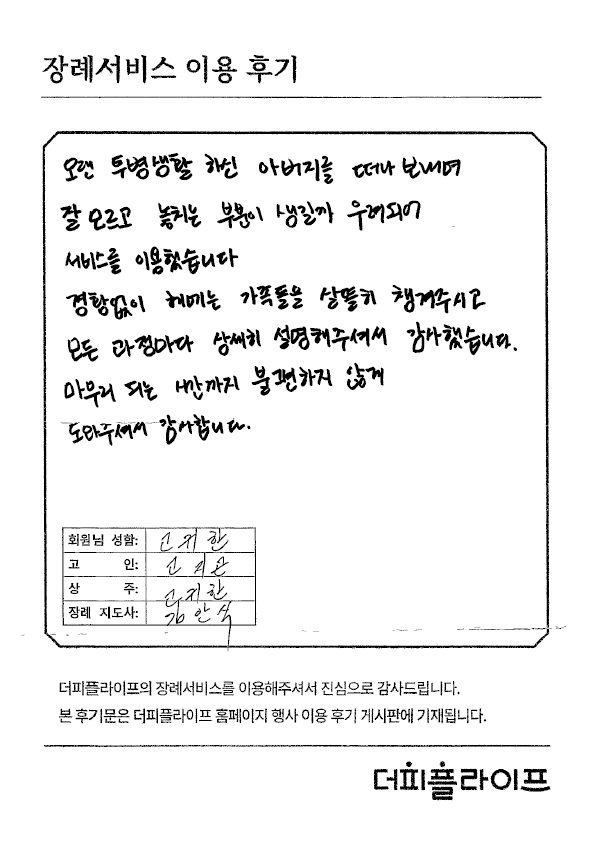 장례서비스 이용 후기
오랜 투병생활 하신 아버지를 떠나 보내며
잘 모르고 놓치는 부분이 생길까 우려되어
서비스를 이용했습니다
경황없이 헤메는 가족들을 살뜰히 챙겨주시고
모든 과정마다 상세히 설명해주셔서 감사했습니다.
마무리 되는 시간까지 불편하지 않게
도와주셔서 감사합니다.
회원님 성함: 고귀한
고 인:
상 주: 고귀한
장례 지도사: 김안식
더피플라이프의 장례서비스를 이용해주셔서 진심으로 감사드립니다.
본 후기문은 더피플라이프 홈페이지 행사 이용 후기 게시판에 기재됩니다.
더피플라이프